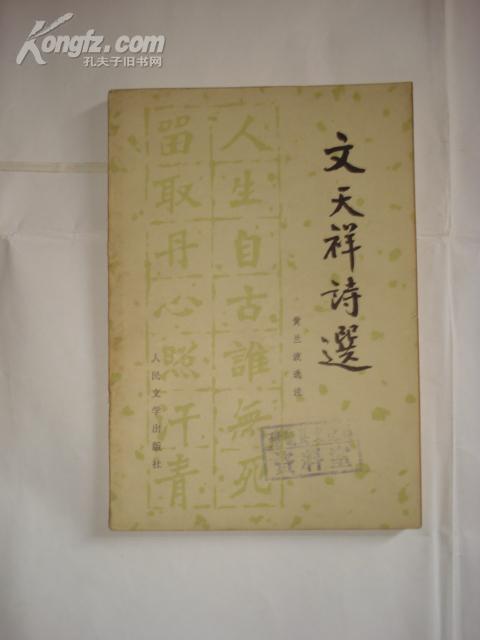 Kongfz.com
孔夫子旧书网
文天祥詩選
黄兰波选注
人生自古誰無死
留取丹心照汗青
人民文学出版社
资料室